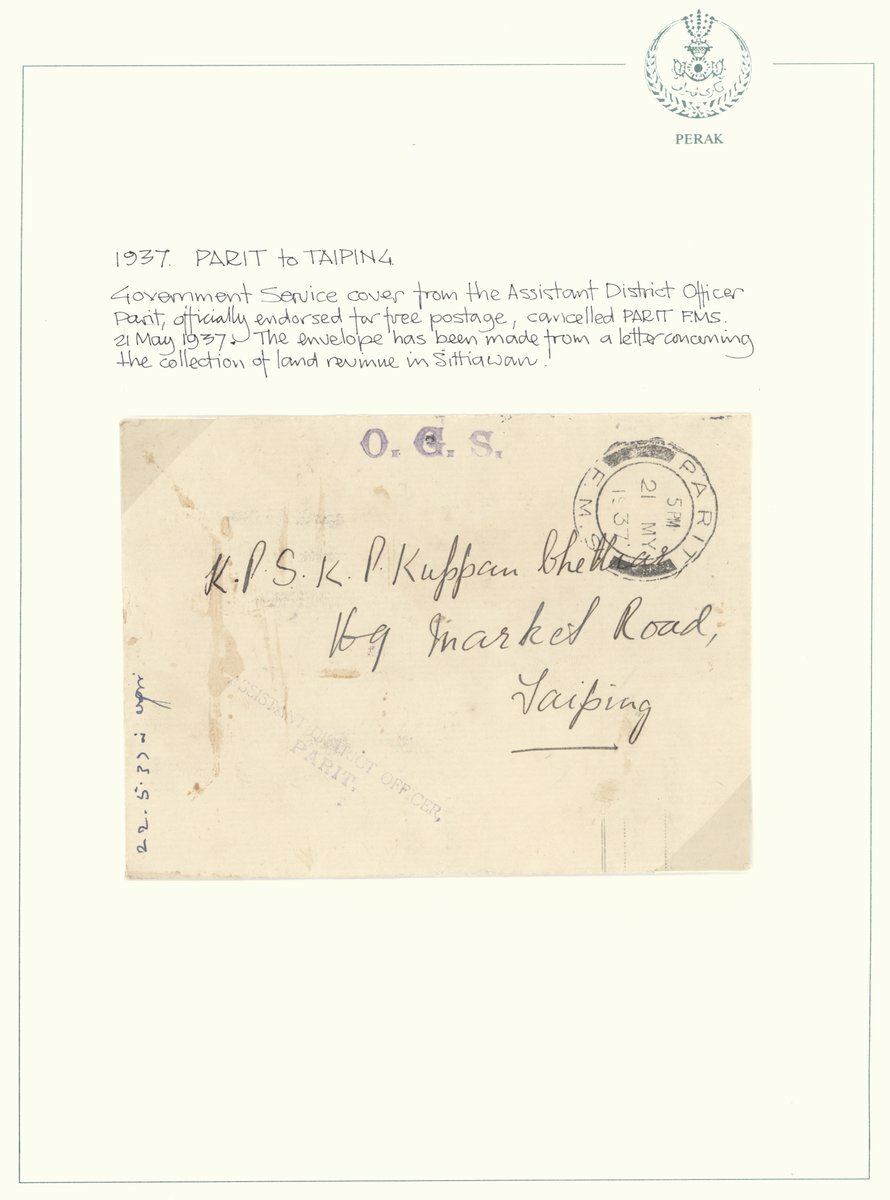 PERAK
1937. PARIT to TAIPING
Government Service cover from the Assistant District Officer
Parit, officially endorsed for free postage, cancelled PARIT F.M.S.
21 May 1937. The envelope has been made from a letter concerning
the collection of land revinue in Sittiawan!
O.G.S.
PARIT
F.M.S.
5 PM
21 MY
1937
K.P.S.K.P. Kuppan Chettiar
169 Market Road,
Taiping
ASSISTANT DISTRICT OFFICER,
PARIT.
22.5.37